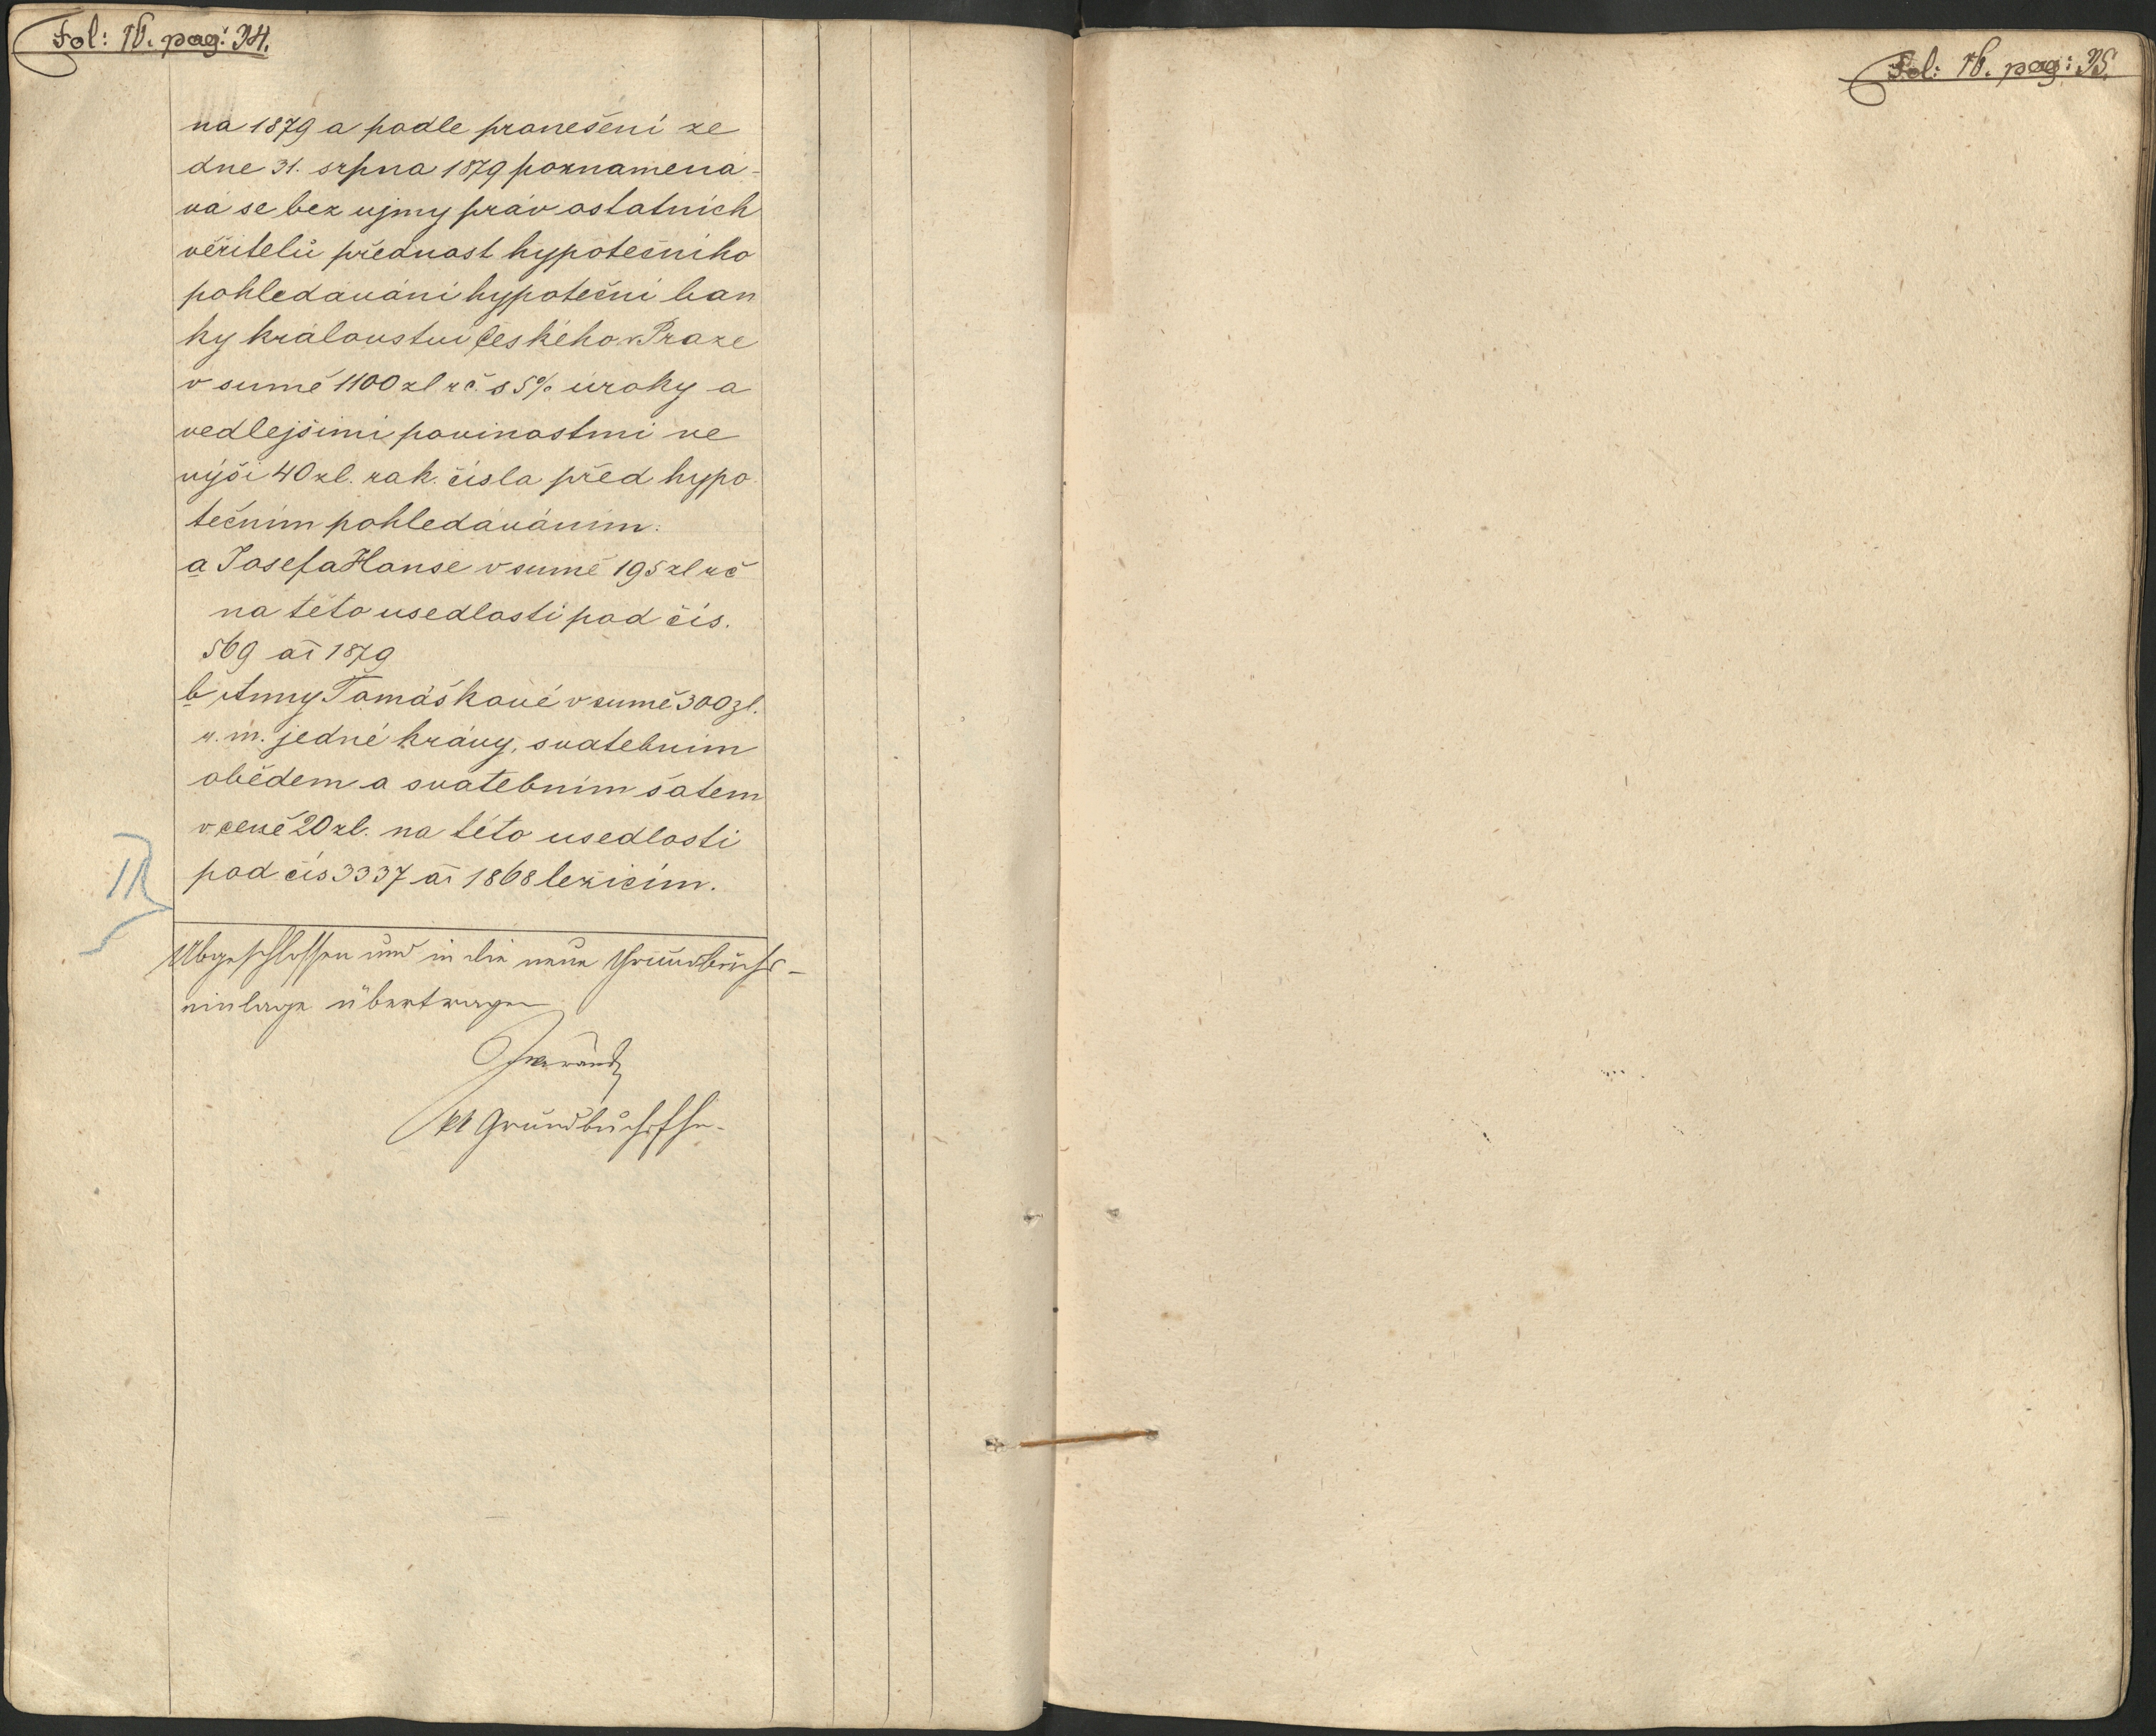 Fol: 16. pag: 34.
na 1879 a podle pronešení ze
dne 31. srpna 1879 poznamená-
vá se bez ujmy práv ostatních
věřitelů přednost hypotečního
pohledávání hypoteční ban
ky království českého v Praze
v sumě 1100 zl rč. s 5% úroky a
vedlejšími povinostmi ve
výši 40 zl. rak. čísla před hypo
tečním pohledáváním:
a Josefa Hanse v sumě 195 zl rč
na této usedlosti pod čís.
569 ai 1879
b Anny Tomáškové v sumě 300 zl.
v. m. jedné krávy, svatebním
obědem a svatebním šatem
v ceně 20 zl. na této usedlosti
pod čís 3337 ai 1868 ležícím.
Abgeschlossen und in die neue Grundbuchs-
einlage übertragen
Fol: 16. pag: 35.